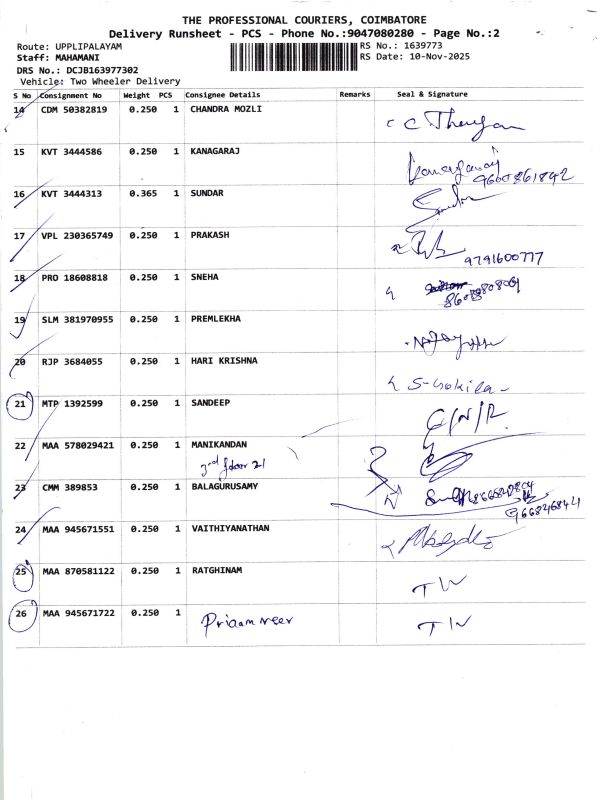 THE PROFESSIONAL COURIERS, COIMBATORE
Delivery Runsheet - PCS - Phone No.:9047080280 - Page No.:2
Route: UPPLIPALAYAM RS No.: 1639773
Staff: MAHAMANI RS Date: 10-Nov-2025
DRS No.: DCJB163977302
Vehicle: Two Wheeler Delivery
S No Consignment No Weight PCS Consignee Details Remarks Seal & Signature
14 CDM 50382819 0.250 1 CHANDRA MOZLI
15 KVT 3444586 0.250 1 KANAGARAJ
9600861842
16 KVT 3444313 0.365 1 SUNDAR
17 VPL 230365749 0.250 1 PRAKASH
9791600777
18 PRO 18608818 0.250 1 SNEHA
19 SLM 381970955 0.250 1 PREMLEKHA
20 RJP 3684055 0.250 1 HARI KRISHNA
S-Gokila
21 MTP 1392599 0.250 1 SANDEEP
C/N/R
22 MAA 578029421 0.250 1 MANIKANDAN
3rd floor 21
23 CMM 389853 0.250 1 BALAGURUSAMY
24 MAA 945671551 0.250 1 VAITHIYANATHAN
25 MAA 870581122 0.250 1 RATGHINAM
26 MAA 945671722 0.250 1